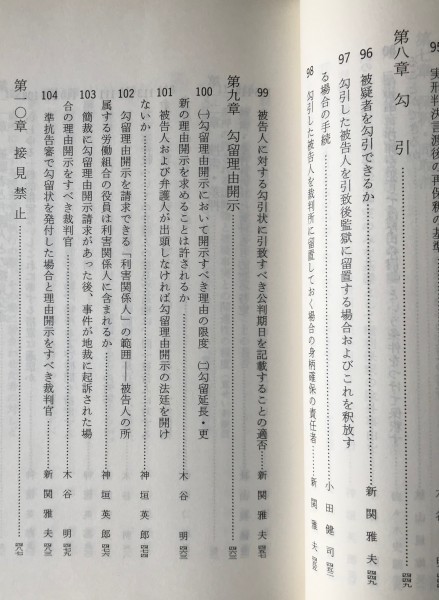 95 実刑判決言渡後の再保釈の基準
第八章 勾引……………四四九
96 被疑者を勾引できるか……………新関雅夫 四四九
97 勾引した被告人を引致後監獄に留置する場合およびこれを釈放す
る場合の手続……………小田健司
98 勾引した被告人を裁判所に留置しておく場合の身柄確保の責任者……新関雅夫
99 被告人に対する勾引状に引致すべき公判期日を記載することの適否……新関雅夫
第九章 勾留理由開示……………
100 ㈠勾留理由開示において開示すべき理由の限度 ㈡勾留延長・更
新の理由開示を求めることは許されるか……………木谷明
101 被告人および弁護人が出頭しなければ勾留理由開示の法廷を開け
ないか……………神垣英郎
102 勾留理由開示を請求できる「利害関係人」の範囲――被告人の所
属する労働組合の役員は利害関係人に含まれるか……………神垣英郎
103 簡裁に勾留理由開示請求があった後、事件が地裁に起訴された場
合の理由開示をすべき裁判官……………木谷明
104 準抗告審で勾留状を発付した場合と理由開示をすべき裁判官……新関雅夫
第一〇章 接見禁止……………